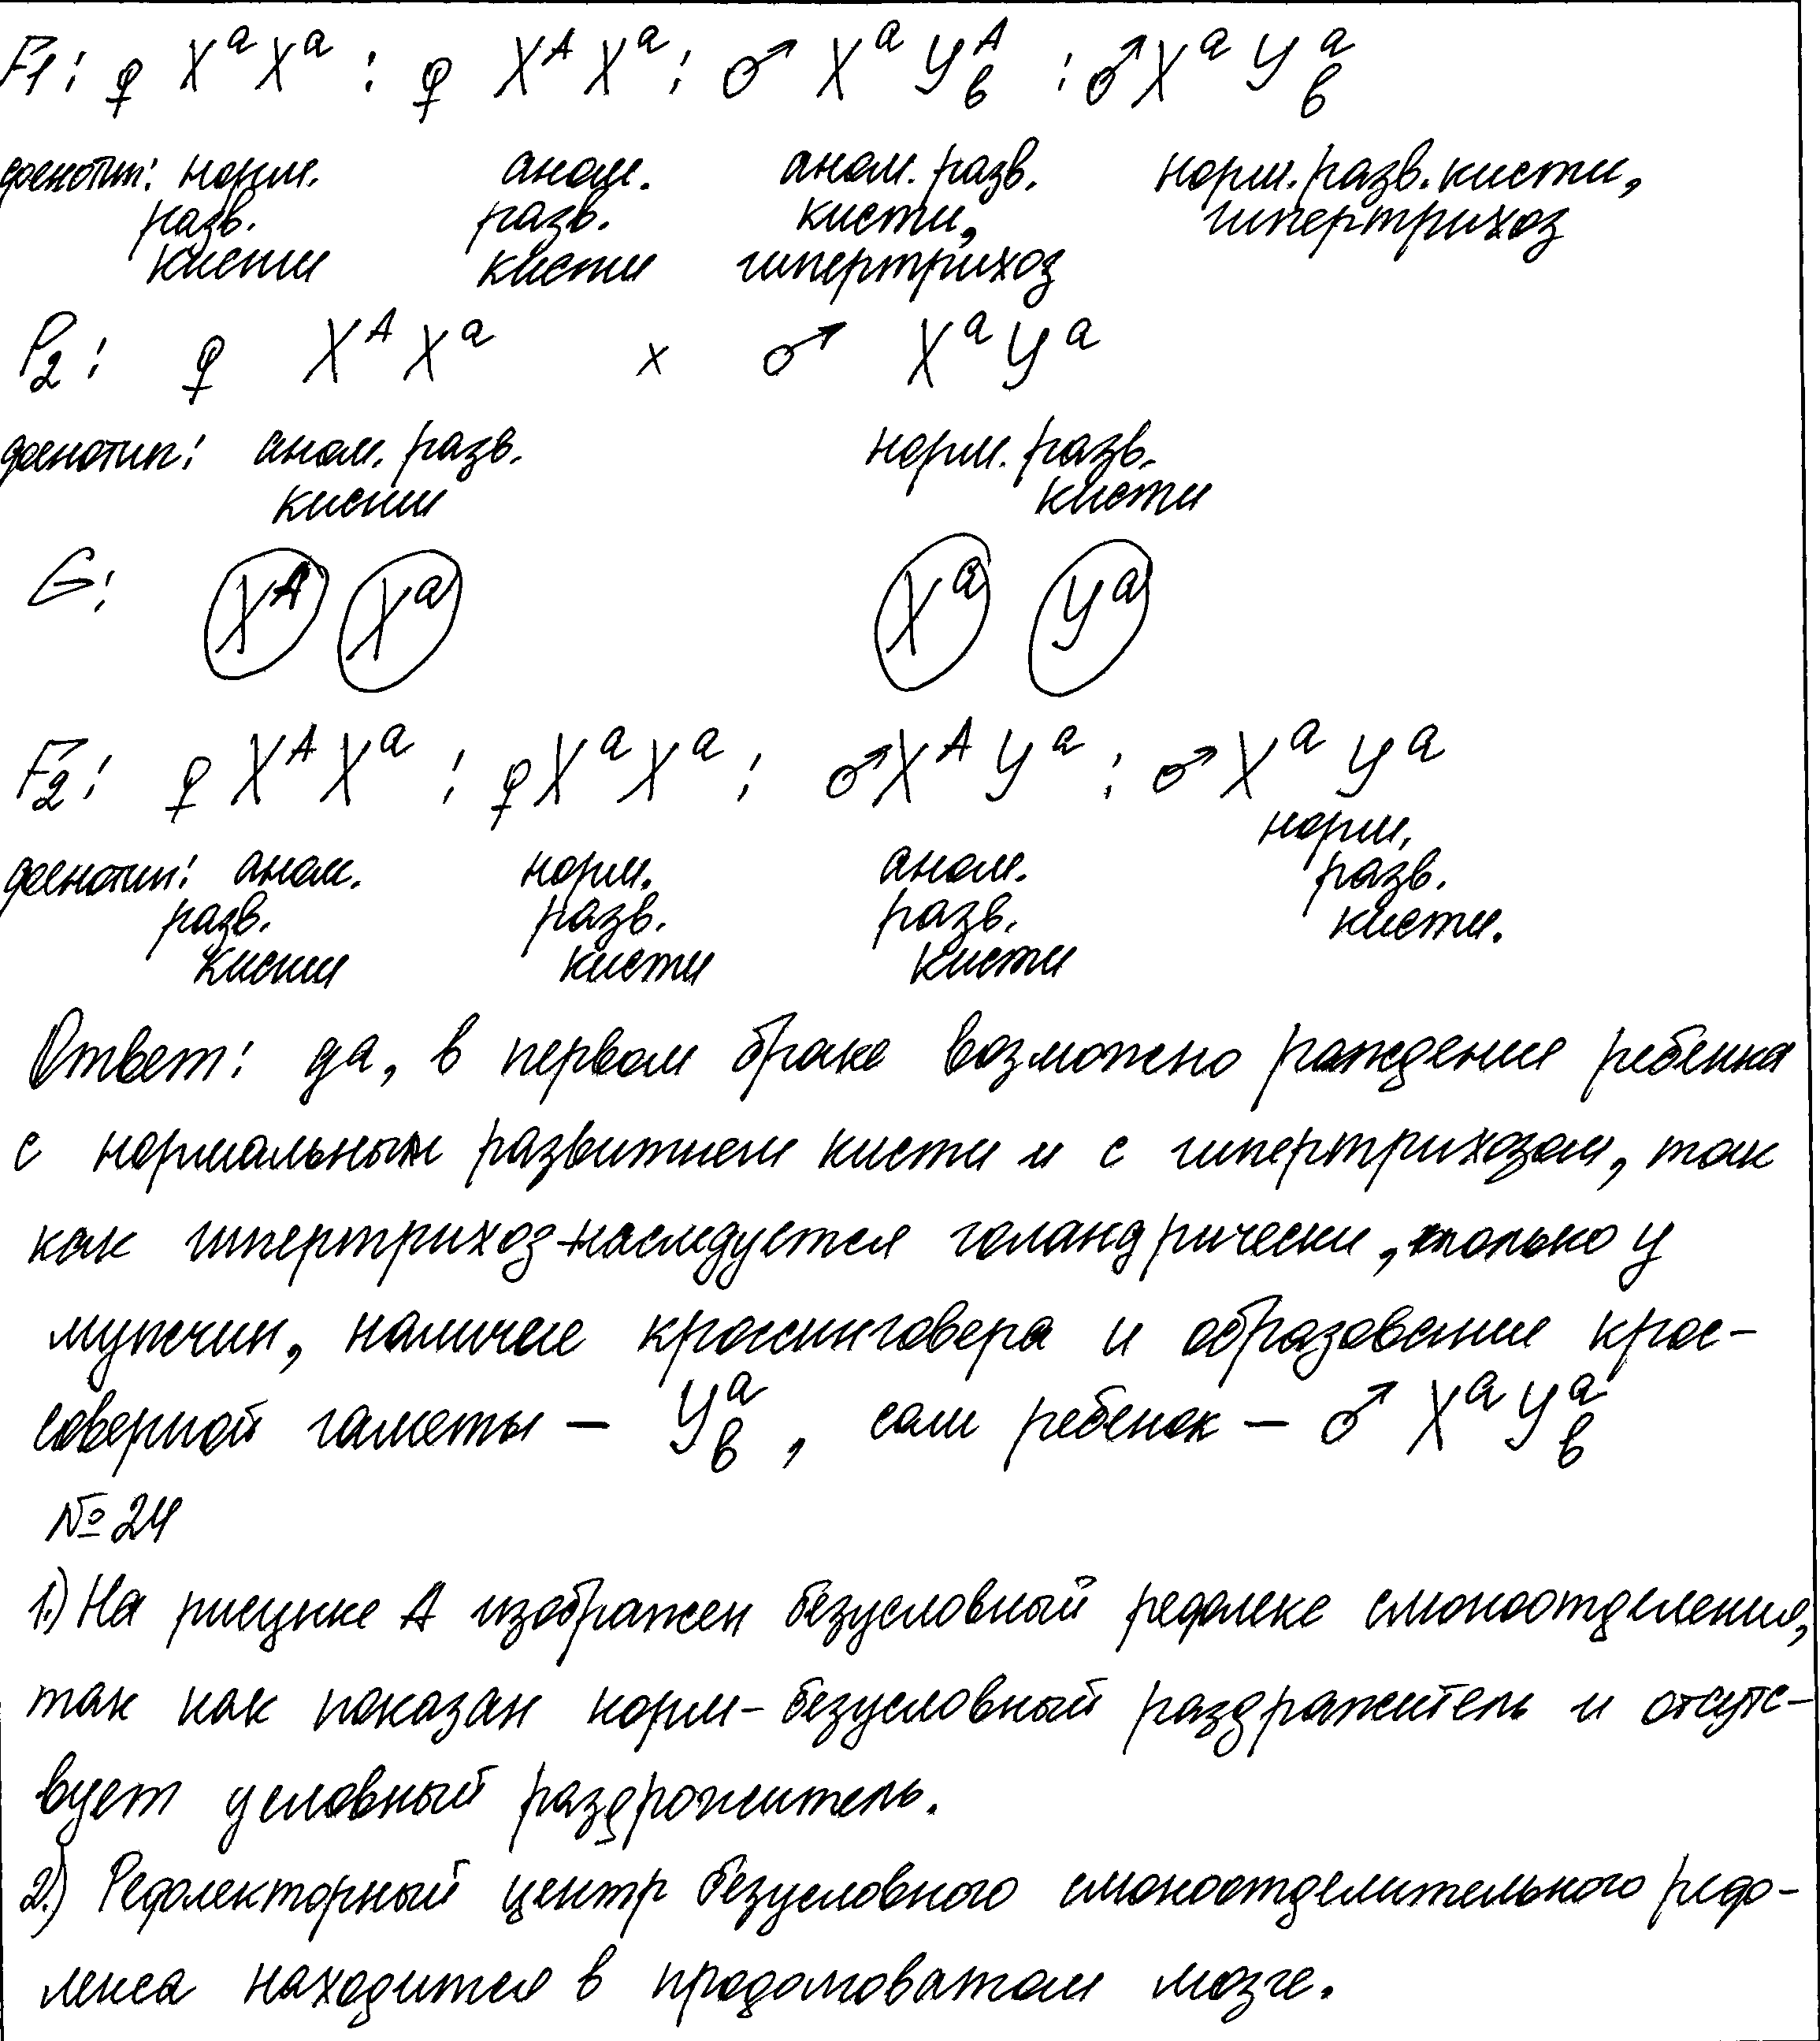 F1: ♀ XᵃXᵃ : ♀ XᴬXᵃ : ♂ XᵃYᴬв : ♂XᵃYᵃв
фенотип: норм. аном. аном. разв. норм. разв. кисти,
разв. разв. кисти, гипертрихоз
кисти кисти гипертрихоз
P2: ♀ XᴬXᵃ x ♂ XᵃYᵃ
фенотип: аном. разв. норм. разв.
кисти кисти
G: Xᴬ Xᵃ Xᵃ Yᵃ
F2: ♀ XᴬXᵃ : ♀XᵃXᵃ : ♂XᴬYᵃ : ♂XᵃYᵃ
норм.
фенотип: аном. норм. аном. разв.
разв. разв. разв. кисти.
кисти кисти кисти
Ответ: да, в первом браке возможно рождение ребенка
с нормальным развитием кисти и с гипертрихозом, так
как гипертрихоз наследуется голандрически, только у
мужчин, наличие кроссинговера и образование крос-
соверной гаметы – Yᵃв, сам ребенок – ♂ XᵃYᵃв
№ 24
1.) На рисунке А изображен безусловный рефлекс слюноотделения,
так как показан корм – безусловный раздражитель и отсутс-
вует условный раздражитель.
2.) Рефлекторный центр безусловного слюноотделительного реф-
лекса находится в продолговатом мозге.